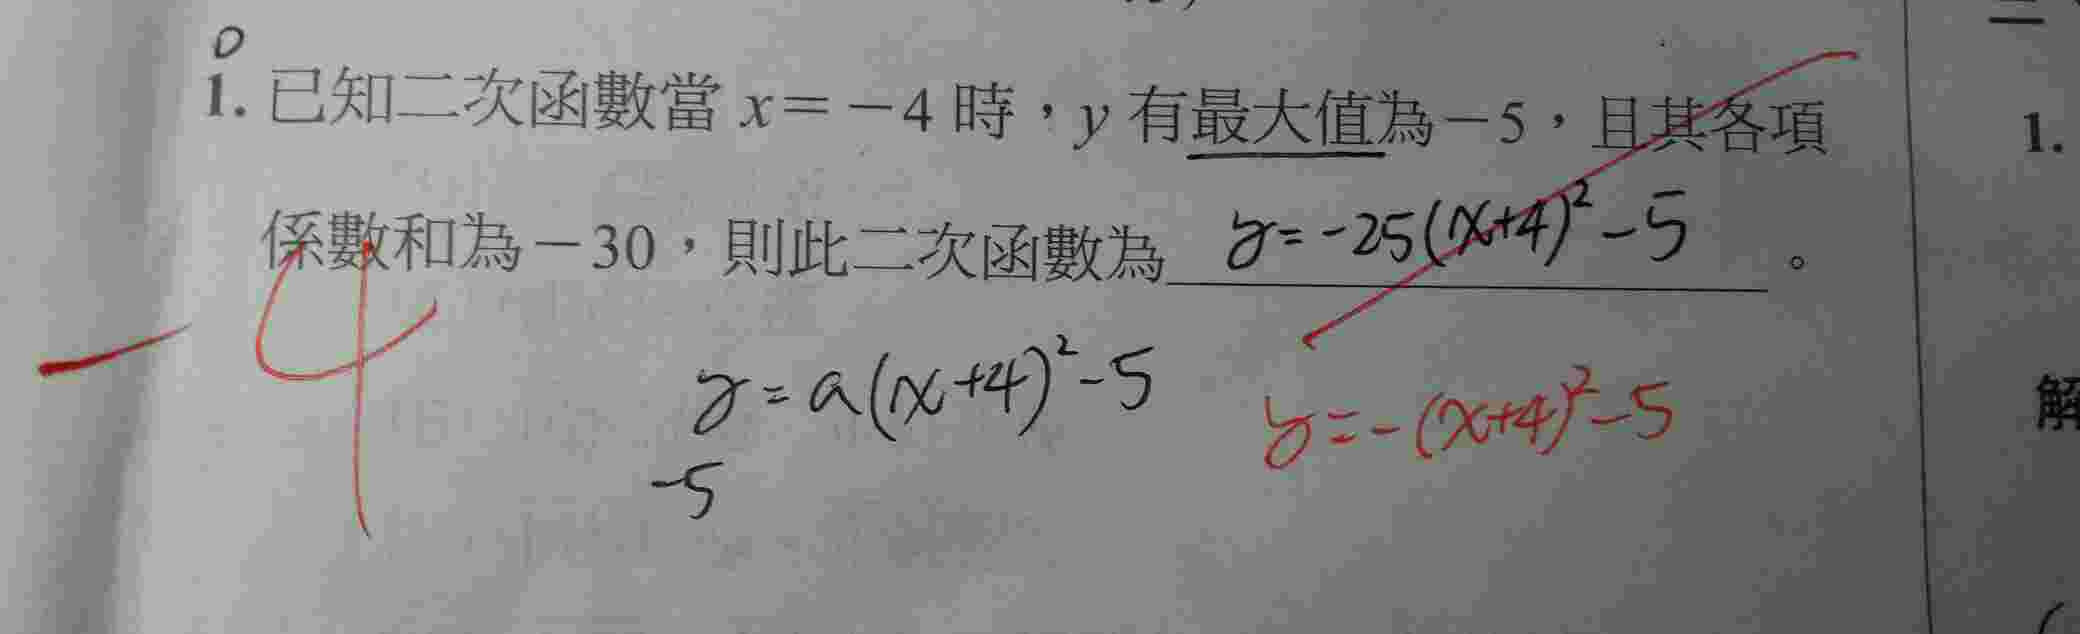 1. 已知二次函數當 x=-4 時，y 有最大值為-5，且其各項
係數和為-30，則此二次函數為 y=-25(x+4)²-5 。
-4
y=a(x+4)²-5
y=-(x+4)²-5
-5
1.
解